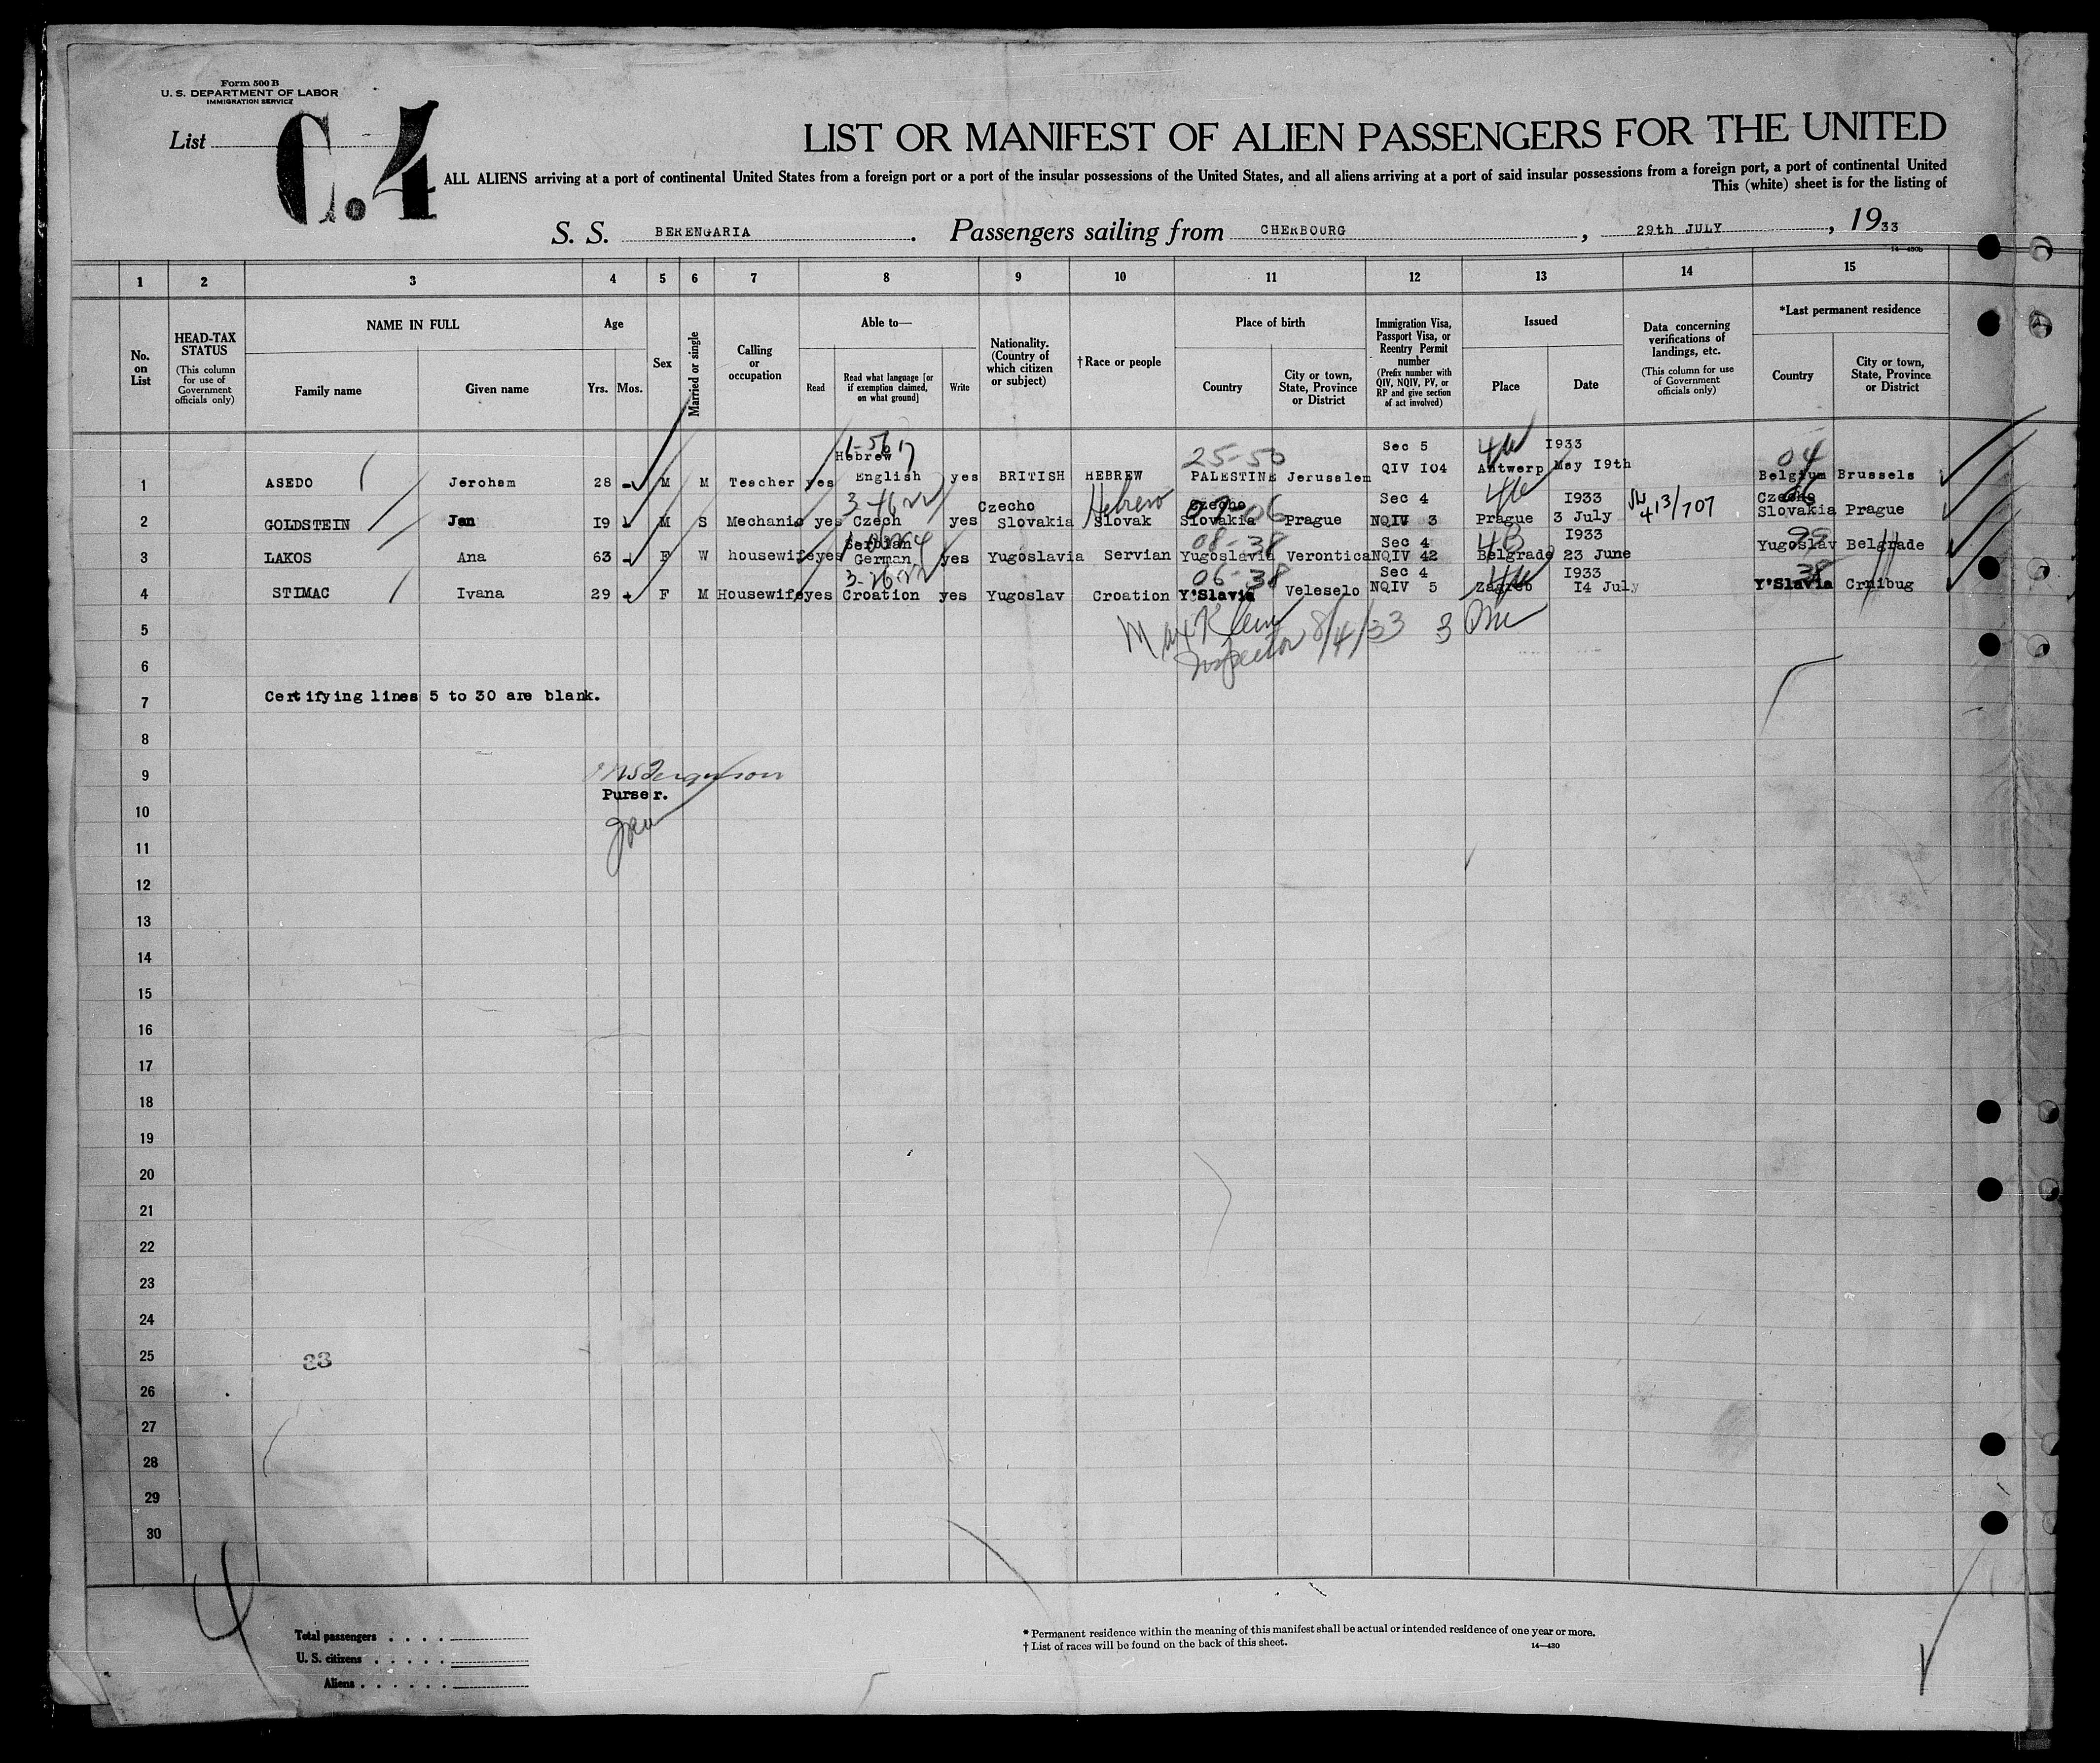 Form 500 B
U. S. DEPARTMENT OF LABOR
IMMIGRATION SERVICE
List
C.4
LIST OR MANIFEST OF ALIEN PASSENGERS FOR THE UNITED
ALL ALIENS arriving at a port of continental United States from a foreign port or a port of the insular possessions of the United States, and all aliens arriving at a port of said insular possessions from a foreign port, a port of continental United
This (white) sheet is for the listing of
S. S. BERENGARIA. Passengers sailing from CHERBOURG, 29th JULY, 1933
14—430b
1 2 3 4 5 6 7 8 9 10 11 12 13 14 15
No. on List
HEAD-TAX STATUS (This column for use of Government officials only)
NAME IN FULL
Family name
Given name
Age
Yrs. Mos.
Sex
Married or single
Calling or occupation
Able to—
Read
Read what language [or if exemption claimed, on what ground]
Write
Nationality. (Country of which citizen or subject)
† Race or people
Place of birth
Country
City or town, State, Province or District
Immigration Visa, Passport Visa, or Reentry Permit number (Prefix number with QIV, NQIV, PV, or RP and give section of act involved)
Issued
Place
Date
Data concerning verifications of landings, etc. (This column for use of Government officials only)
*Last permanent residence
Country
City or town, State, Province or District
1-56 17 25-50 Sec 5 4W 1933 04
1 ASEDO Jeroham 28 M M Teacher yes Hebrew English yes BRITISH HEBREW PALESTINE Jerusalem QIV 104 Antwerp May 19th Belgium Brussels
2 GOLDSTEIN Jan 19 M S Mechanic yes Czech yes Czecho Slovakia Slovak Hebrew Czecho Slovakia Prague Sec 4 NQIV 3 Prague 1933 3 July 413/707 Czecho Slovakia Prague
3 LAKOS Ana 63 F W housewife yes Serbian German yes Yugoslavia Servian 08-38 Yugoslavia Verontica Sec 4 NQIV 42 Belgrade 1933 23 June 99 Yugoslav Belgrade
4 STIMAC Ivana 29 F M Housewife yes Croation yes Yugoslav Croation 06-38 Y'Slavia Veleselo Sec 4 NQIV 5 Zagreb 1933 14 July 38 Y'Slavia Crnibug
5 Max Klein
Inspector 8/4/33
6
7 Certifying lines 5 to 30 are blank.
8
9 Ferguson
Purser.
10
11
12
13
14
15
16
17
18
19
20
21
22
23
24
25 33
26
27
28
29
30
Total passengers
U. S. citizens
Aliens
* Permanent residence within the meaning of this manifest shall be actual or intended residence of one year or more.
† List of races will be found on the back of this sheet.
14—430